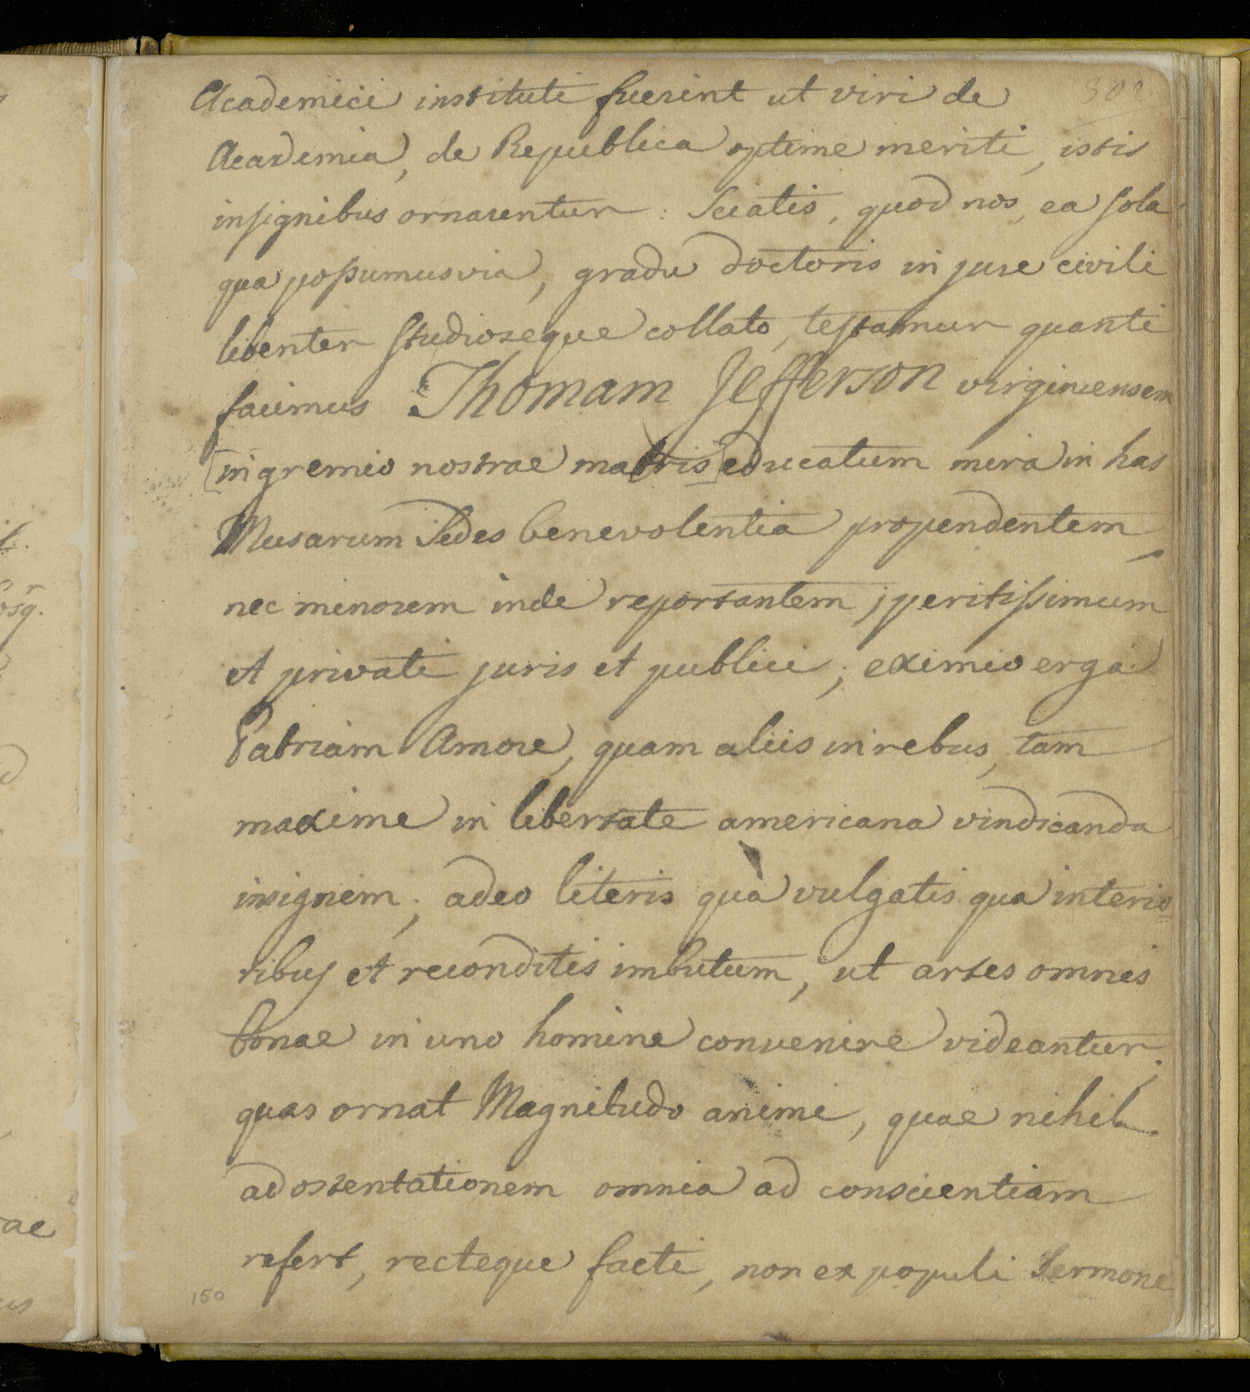 302
Academici instituti fuerint ut viri de
Academia, de Republica optime meriti, istis
insignibus ornarentur: Sciatis, quod nos, ea sola
qua possumus via, gradu doctoris in jure civili
libenter studioseque collato, testamur quanti
facimus Thomam Jefferson virginiensem
[in gremio nostrae matris] educatum mira in has
Musarum Sedes benevolentia propendentem,
nec minorem inde reportantem; peritissimum
et privati juris et publici; eximio erga
Patriam Amore, quam aliis in rebus, tam
maxime in libertate americana vindicanda
insignem; adeo literis quà vulgatis qua interio
ribus et reconditis imbutum, ut artes omnes
bonae in uno homine convenire videantur;
quas ornat Magnitudo animi, quae nihil
ad ostentationem omnia ad conscientiam
refert, recteque facti, non ex populi Sermone
150
il.
osq.
ae
us